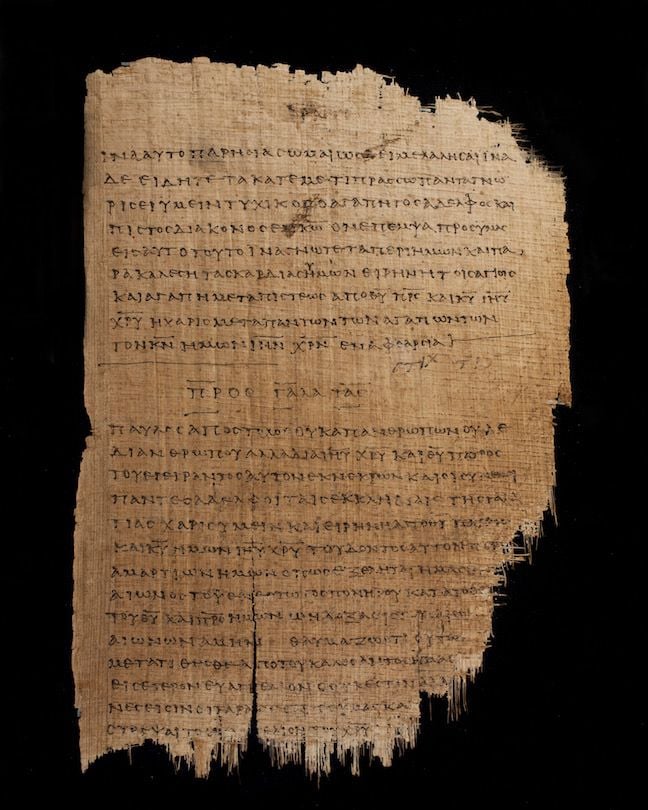 ΙΝΑΑΥΤΟΠΑΡΗϹΙΑϹΩΜΑΙΩϹΔΕΙΜΕΛΑΛΗϹΑΙΙΝΑ
ΔΕΕΙΔΗΤΕΤΑΚΑΤΕΜΕΤΙΠΡΑϹϹΩΠΑΝΤΑΓΝΩ
ΡΙϹΕΙΥΜΕΙΝΤΥΧΙΚΟϹΟΑΓΑΠΗΤΟϹΑΔΕΛΦΟϹΚΑΙ
ΠΙϹΤΟϹΔΙΑΚΟΝΟϹΕΝΚΩΟΝΕΠΕΜΨΑΠΡΟϹΥΜΑϹ
ΕΙϹΑΥΤΟΤΟΥΤΟΙΝΑΓΝΩΤΕΤΑΠΕΡΙΗΜΩΝΚΑΙΠΑ
ΡΑΚΑΛΕϹΗΤΑϹΚΑΡΔΙΑϹΥΜΩΝΕΙΡΗΝΗΤΟΙϹΑΓΙΟΙϹ
ΚΑΙΑΓΑΠΗΜΕΤΑΠΙϹΤΕΩϹΑΠΟΘΥ ΠΡϹ ΚΑΙΚΥ ΙΗΥ
ΧΡΥ ΗΧΑΡΙϹΜΕΤΑΠΑΝΤΩΝΤΩΝΑΓΑΠΩΝΤΩΝ
ΤΟΝΚΝ ΗΜΩΝΙΗΝ ΧΡΝ ΕΝΑΦΘΑΡϹΙΑ
ϹΤΙΧ ΤΙϚ
ΠΡΟϹ ΓΑΛΑΤΑϹ
ΠΑΥΛΟϹΑΠΟϹΤΟΛΟϹΟΥΚΑΠΑΝΘΡΩΠΩΝΟΥΔΕ
ΔΙΑΝΘΡΩΠΟΥΑΛΛΑΔΙΑΙΗΥ ΧΡΥ ΚΑΙΘΥ ΠΑΤΡΟϹ
ΤΟΥΕΓΕΙΡΑΝΤΟϹΑΥΤΟΝΕΚΝΕΚΡΩΝΚΑΙΟΙϹΥΝΕΜΟΙ
ΠΑΝΤΕϹΑΔΕΛΦΟΙΤΑΙϹΕΚΚΛΗϹΙΑΙϹΤΗϹΓΑΛΑ
ΤΙΑϹΧΑΡΙϹΥΜΕΙΝΚΑΙΕΙΡΗΝΗΑΠΟΘΥ ΠΑΤΡΟϹ
ΚΑΙΚΥ ΗΜΩΝΙΗΥ ΧΡΥ ΤΟΥΔΟΝΤΟϹΑΥΤΟΝΠΕΡΙ
ΑΜΑΡΤΙΩΝΗΜΩΝΟΠΩϹΕΞΕΛΗΤΑΙΗΜΑϹ
ΑΙΩΝΟϹΤΟΥΕΝΕϹΤΩΤΟϹΠΟΝΗΡΟΥΚΑΤΑΤΟ
ΤΟΥΘΥ ΚΑΙΠΡϹ ΗΜΩΝΩΗΔΟΞΑΕΙϹ
ΑΙΩΝΩΝΑΜΗΝ ΘΑΥΜΑΖΩΟΤΙΟΥΤΩϹ
ΜΕΤΑΤΙΘΕϹΘΕΑΠΟΤΟΥΚΑΛΕϹΑΝΤΟϹ
ΕΙϹΕΤΕΡΟΝΕΥΑΓΓΕΛΙΟΝΟΟΥΚΕϹΤΙΝ
ΝΕϹΕΙϹΙΝΟΙΤΑΡΑϹϹΟΝΤΕϹΥΜΑϹΚΑΙ